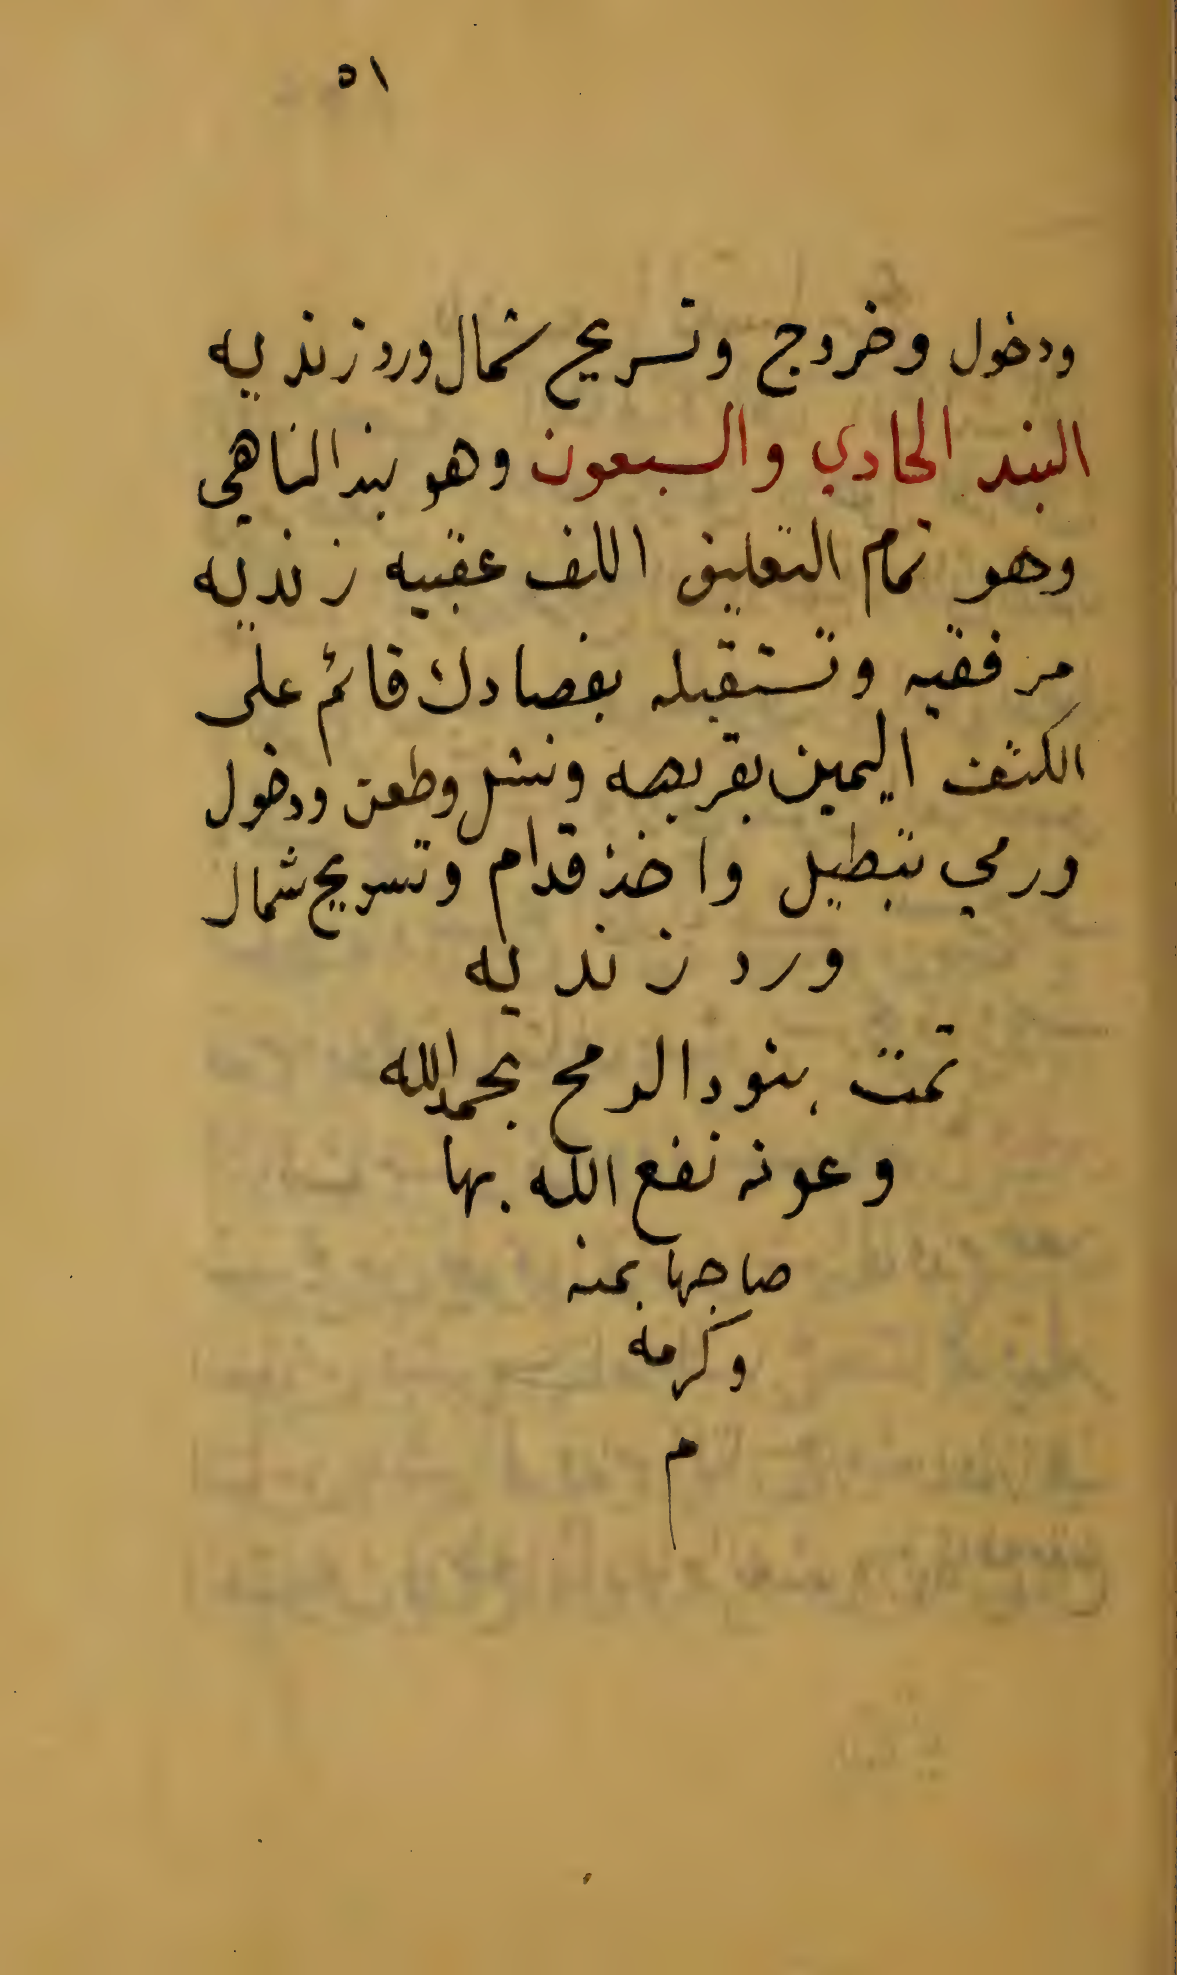 ٥١
ودخول وخروج وتسريح شمال ورد زنديه
البند الحادي والسبعون وهو بند الناهي
وهو تمام التعليق اللف عقبيه زنديه
مرفقيه وتستقبله بفصادك قائم على
الكتف اليمين بقربصه ونتش وطعن ودخول
ورمي تبطيل واخذ قدام وتسريح شمال
ورد زنديه
تمت بنود الرمح بحمد الله
وعونه نفع الله بها
صاحبها بمنه
وكرمه
م